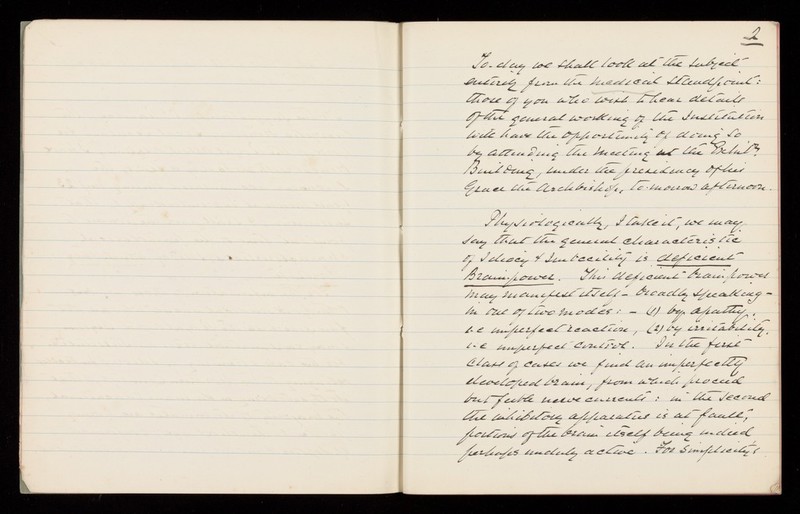 2
To-day we shall look at the subject
entirely from the medical standpoint:
those of you who wish to hear details
of the general working of the Institution
will have the opportunity of doing so
by attending the meeting at the Exhibn.
Building, under the presidency of his
Grace the Archbishop, to-morrow afternoon.
Physiologically, I take it, we may
say that the general characteristic
of Idiocy & Imbecility is deficient
Brainpower. This deficient brainpower
may manifest itself - broadly speaking -
in one of two modes: - (1) by apathy,
i.e imperfect reaction, (2) by irritability,
i.e imperfect control. In the first
class of cases we find an imperfectly
developed brain, from which proceed
but feeble nerve currents: in the second
the inhibitory apparatus is at fault,
portions of the brain itself being indeed
perhaps unduly active. For simplicity's